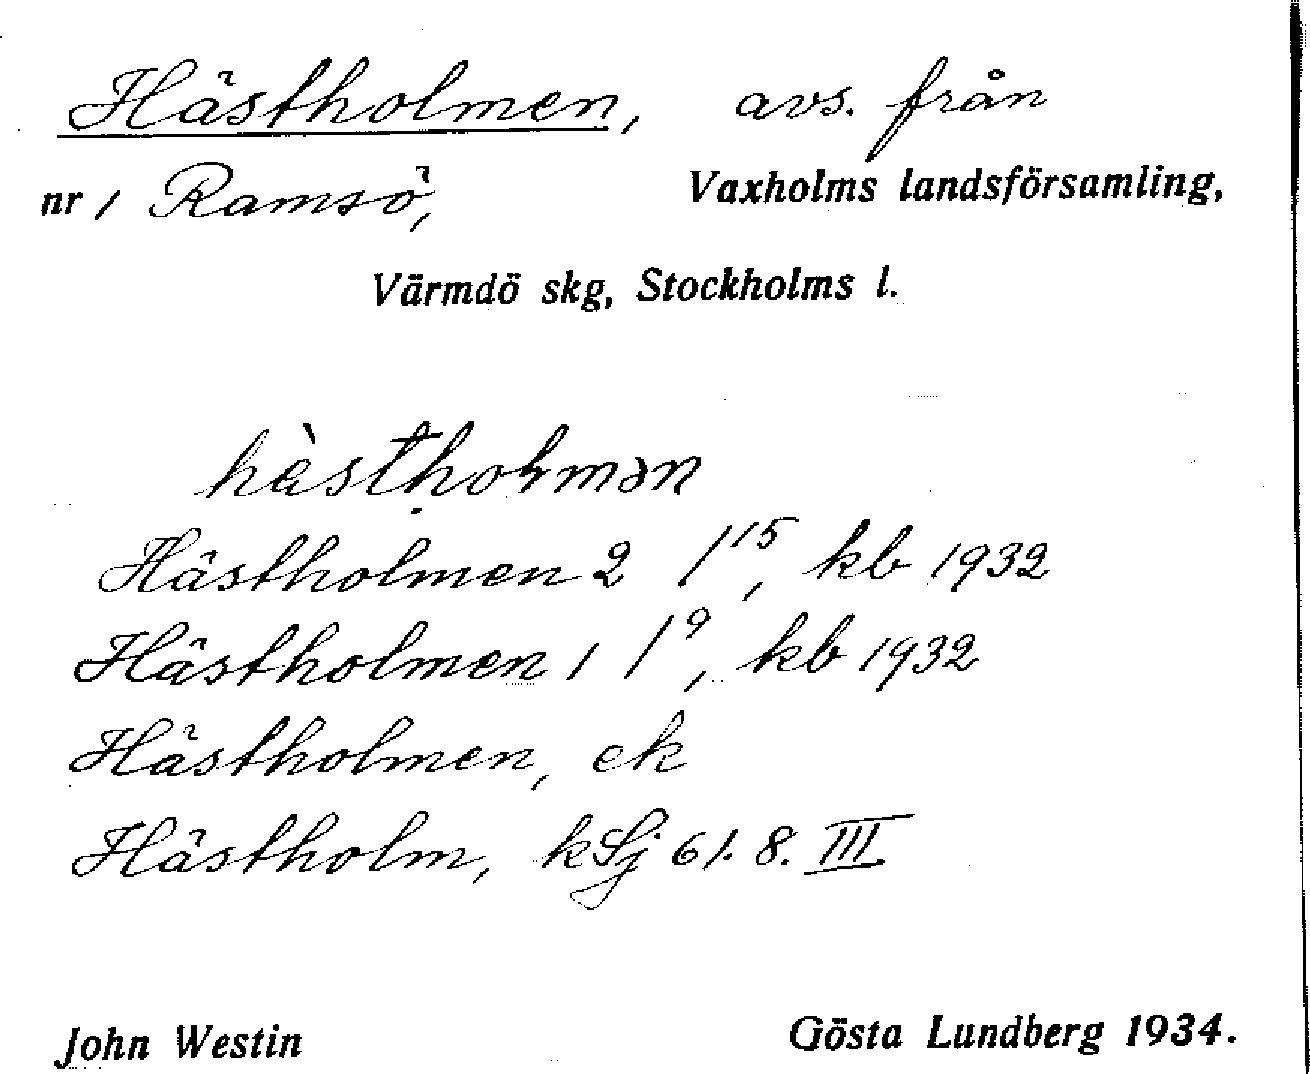 Hästholmen, avs. från
nr 1 Ramsö, Vaxholms landsförsamling,
Värmdö skg, Stockholms l.
hàstholmən
Hästholmen 2 /15, kb 1932
Hästholmen 1 /9, kb 1932
Hästholmen, ek
Hästholm, kSj 61. 8. III
John Westin Gösta Lundberg 1934.